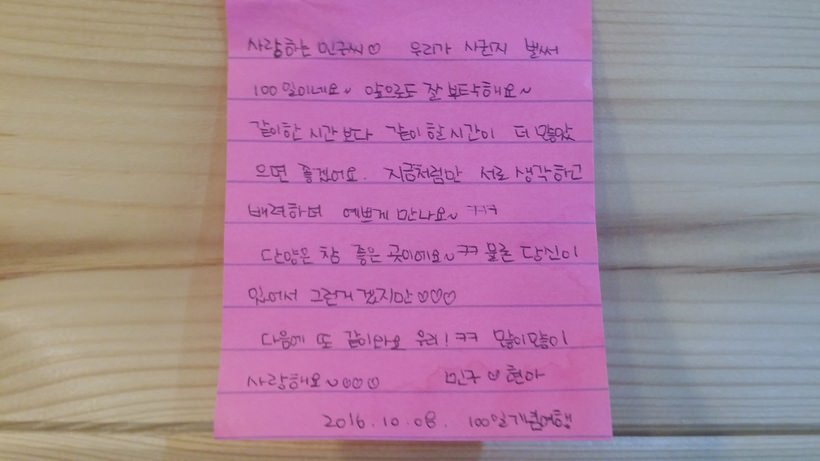 사랑하는 민구씨♡ 우리가 사귄지 벌써
100일이네요~ 앞으로도 잘 부탁해요~
같이한 시간보다 같이 할 시간이 더 많았
으면 좋겠어요. 지금처럼만 서로 생각하고
배려하며 예쁘게 만나요~ ㅋㅋㅋ
단양은 참 좋은 곳이에요~ㅋㅋ 물론 당신이
있어서 그런거겠지만♡♡♡
다음에 또 같이와요 우리! ㅋㅋ 많이많이
사랑해요~♡♡♡ 민구♡현아
2016.10.08. 100일기념여행